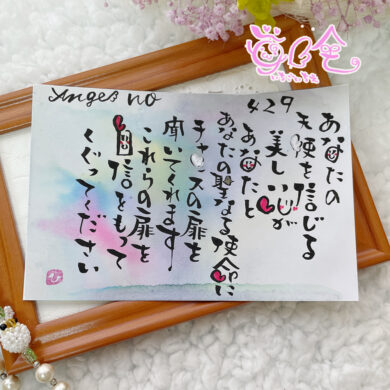 Angel no
429
あなたの
天使を信じる
美しい心が
あなたと
あなたの聖なる使命に
チャンスの扉を
開いてくれます
これらの扉を
自信をもって
くぐってください